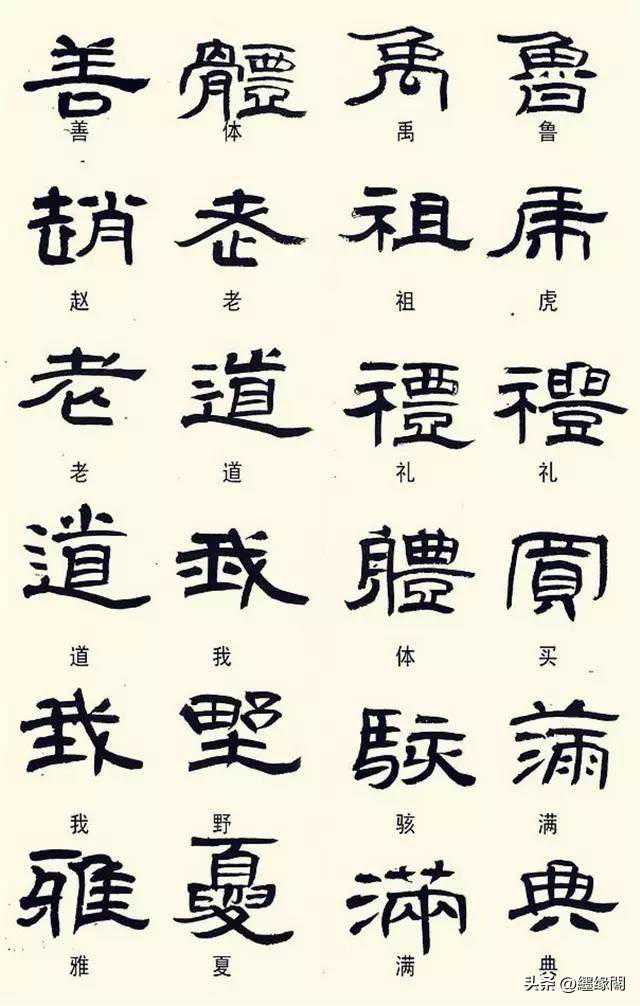 善 體 禹 魯
善 体 禹 鲁
趙 老 祖 虎
赵 老 祖 虎
老 道 禮 禮
老 道 礼 礼
道 我 體 買
道 我 体 买
我 野 駭 滿
我 野 骇 满
雅 夏 滿 典
雅 夏 满 典
头条 @纒缘閣